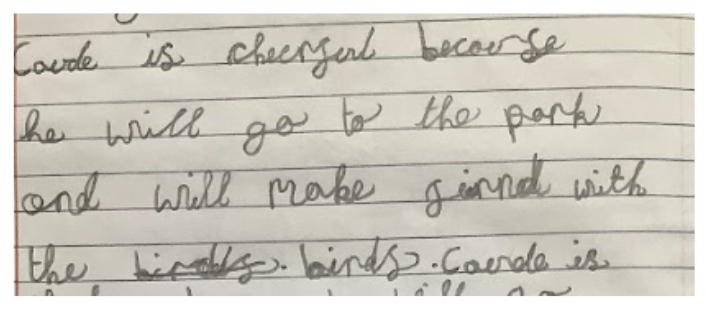 Caude is cheerful because
he will go to the park
and will make with
the birds. Caude is